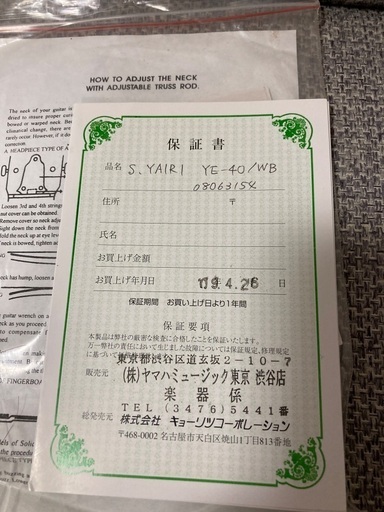 HOW TO ADJUST THE NECK
WITH ADJUSTABLE TRUSS ROD.
The neck of your guitar is
dried to insure proper
bowed or warped neck.
climatical change, there are
rarely occur. However, if
correction.
A. HEADPIECE TYPE OF
Loosen 3rd and 4th strings
nut cover can be obtained.
Remove cover so neck
Sight down the neck from
Hold the neck up at eye
neck is bowed, tighten
neck has hump, loosen a
guitar wrench on
neck as you proceed.
to compensate
FINGERBOARD
保証書
品名 S.YAIRI YE-40/WB
08063154
住所 〒
氏名
お買上げ金額
お買上げ年月日 '09.4.26 日
保証期間 お買い上げ日より1年間
保証要項
本製品は弊社の厳密な検査に合格したことを保証いたします。
万一弊社の責任において生じました故障については保証規定、修理規定
に基づいて
東京都渋谷区道玄坂2-10-7
販売元 (株)ヤマハミュージック東京 渋谷店
楽器係
TEL (3476)5441番
総発売元 株式会社 キョーリツコーポレーション
〒468-0002 名古屋市天白区焼山1丁目813番地